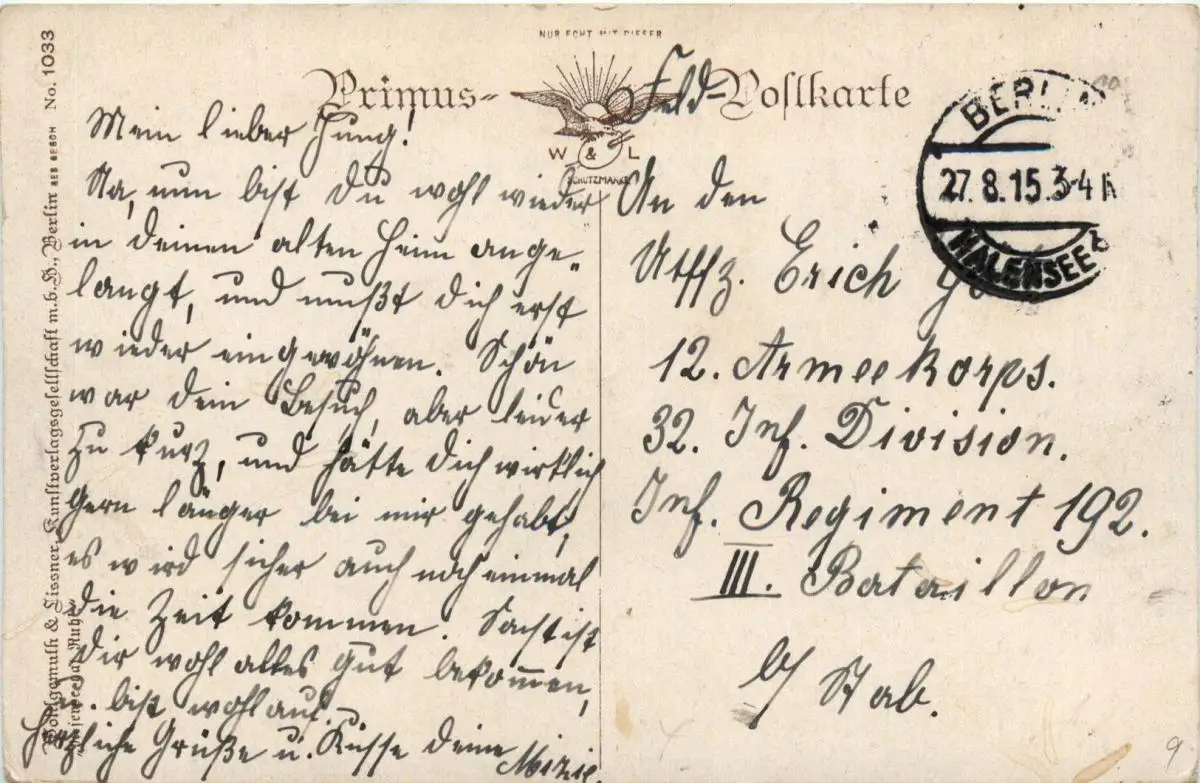 NUR ECHT MIT DIESER
Primus-Postkarte
Feld-
W & L
SCHUTZMARKE
BERLIN
27.8.15.3-4
HALENSEE
No. 1033
Wohlgemuth & Lissner, Kunstverlagsgesellschaft m.b.H., Berlin
Mein lieber Jung!
Na, nun bist Du wohl wieder
in deinen alten Heim ange-
langt, und mußt Dich erst
wieder eingewöhnen. Schön
war dein Besuch, aber leider
zu kurz, und hätte Dich wirklich
gern länger bei mir gehabt,
es wird sicher auch noch einmal
die Zeit kommen. Sonst ist
Dir wohl alles gut bekommen,
u. bist wohlauf.
Herzliche Grüße u. Küsse deine
An den
Utffz. Erich
12. Armeekorps.
32. Inf. Division.
Inf. Regiment 192.
III. Bataillon
b/ Stab.
9